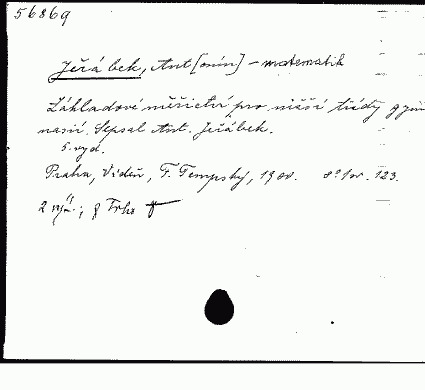 56869
Jeřábek, Ant[onín] - matematik
Základové měřictví pro nižší třídy gym
nasií. Sepsal Ant. Jeřábek.
5. vyd.
Praha, Vídeň, F. Tempský, 1900. 8° 123.
2